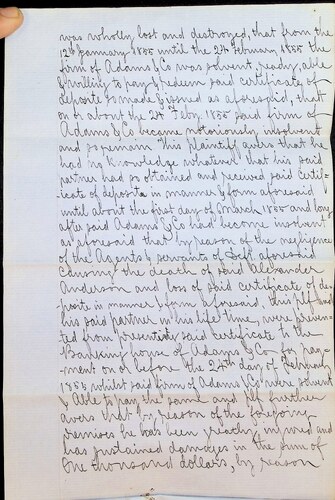 was wholly lost and destroyed, that from the
12th January 1855 until the 24th February 1855 the
firm of Adams & Co was solvent, ready, able
& willing to pay & redeem said certificate of
deposite so made & issued as aforesaid, that
on or about the 24th Feby 1855 said firm of
Adams & Co became notoriously insolvent
and so remain This plaintiff avers that he
had no knowledge whatever that his said
partner had so obtained and received said Certif-
icate of deposite in manner & form aforesaid
until about the first day of March 1855 and long
after said Adams & Co had become insolvent
as aforesaid that by reason of the negligence
of the Agents & servants of deft aforesaid
causing the death of said Alexander
Anderson and loss of said certificate of de-
posite in manner & form aforesaid, this plff and
his said partner in his life time, were preven-
ted from presenting said certificate to the
Banking house of Adams & Co for pay-
ment on or before the 24th day of February
1855 whilst said firm of Adams & Co were solvent
& Able to pay the same and plff further
avers that by reason of the foregoing
premises he has been greatly injured and
has sustained damages in the sum of
One thousand dollars, by reason